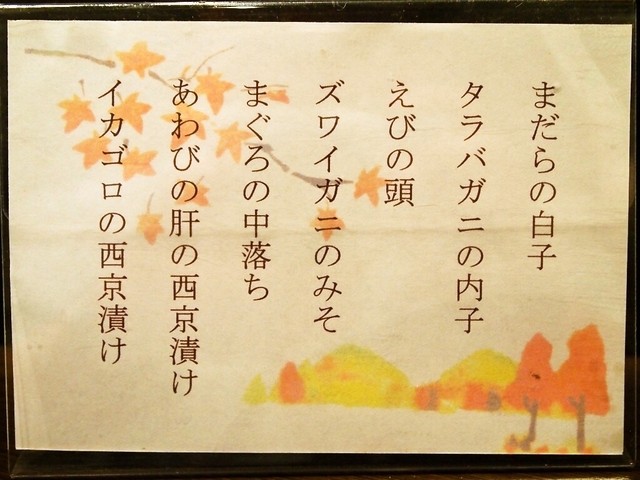 まだらの白子
タラバガニの内子
えびの頭
ズワイガニのみそ
まぐろの中落ち
あわびの肝の西京漬け
イカゴロの西京漬け